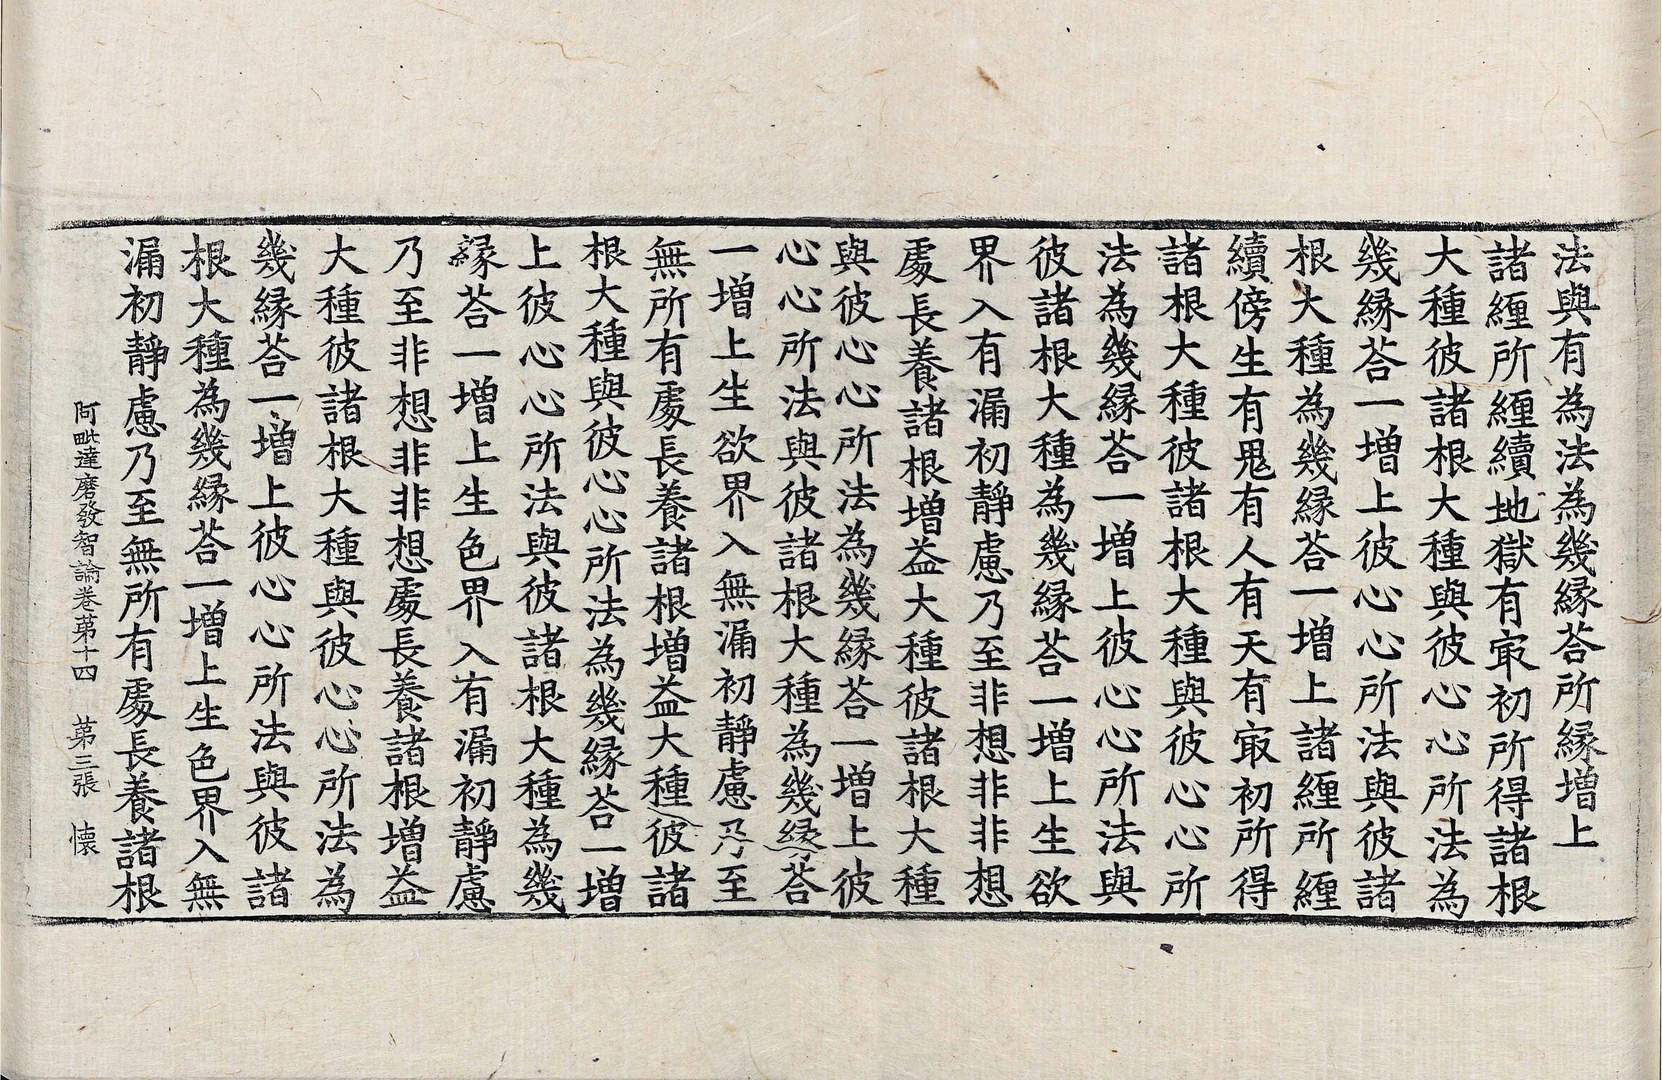 法與有為法為幾縁荅所縁增上
諸纒所纒續地獄有㝡初所得諸根
大種彼諸根大種與彼心心所法為
幾縁荅一增上彼心心所法與彼諸
根大種為幾縁荅一增上諸纒所纒
續傍生有鬼有人有天有㝡初所得
諸根大種彼諸根大種與彼心心所
法為幾縁荅一增上彼心心所法與
彼諸根大種為幾縁荅一增上生欲
界入有漏初靜慮乃至非想非非想
處長養諸根增益大種彼諸根大種
與彼心心所法為幾縁荅一增上彼
心心所法與彼諸根大種為幾縁荅
一增上生欲界入無漏初靜慮乃至
無所有處長養諸根增益大種彼諸
根大種與彼心心所法為幾縁荅一增
上彼心心所法與彼諸根大種為幾
縁荅一增上生色界入有漏初靜慮
乃至非想非非想處長養諸根增益
大種彼諸根大種與彼心心所法為
幾縁荅一增上彼心心所法與彼諸
根大種為幾縁荅一增上生色界入無
漏初靜慮乃至無所有處長養諸根
阿毗達磨發智論卷苐十四 苐三張 懷